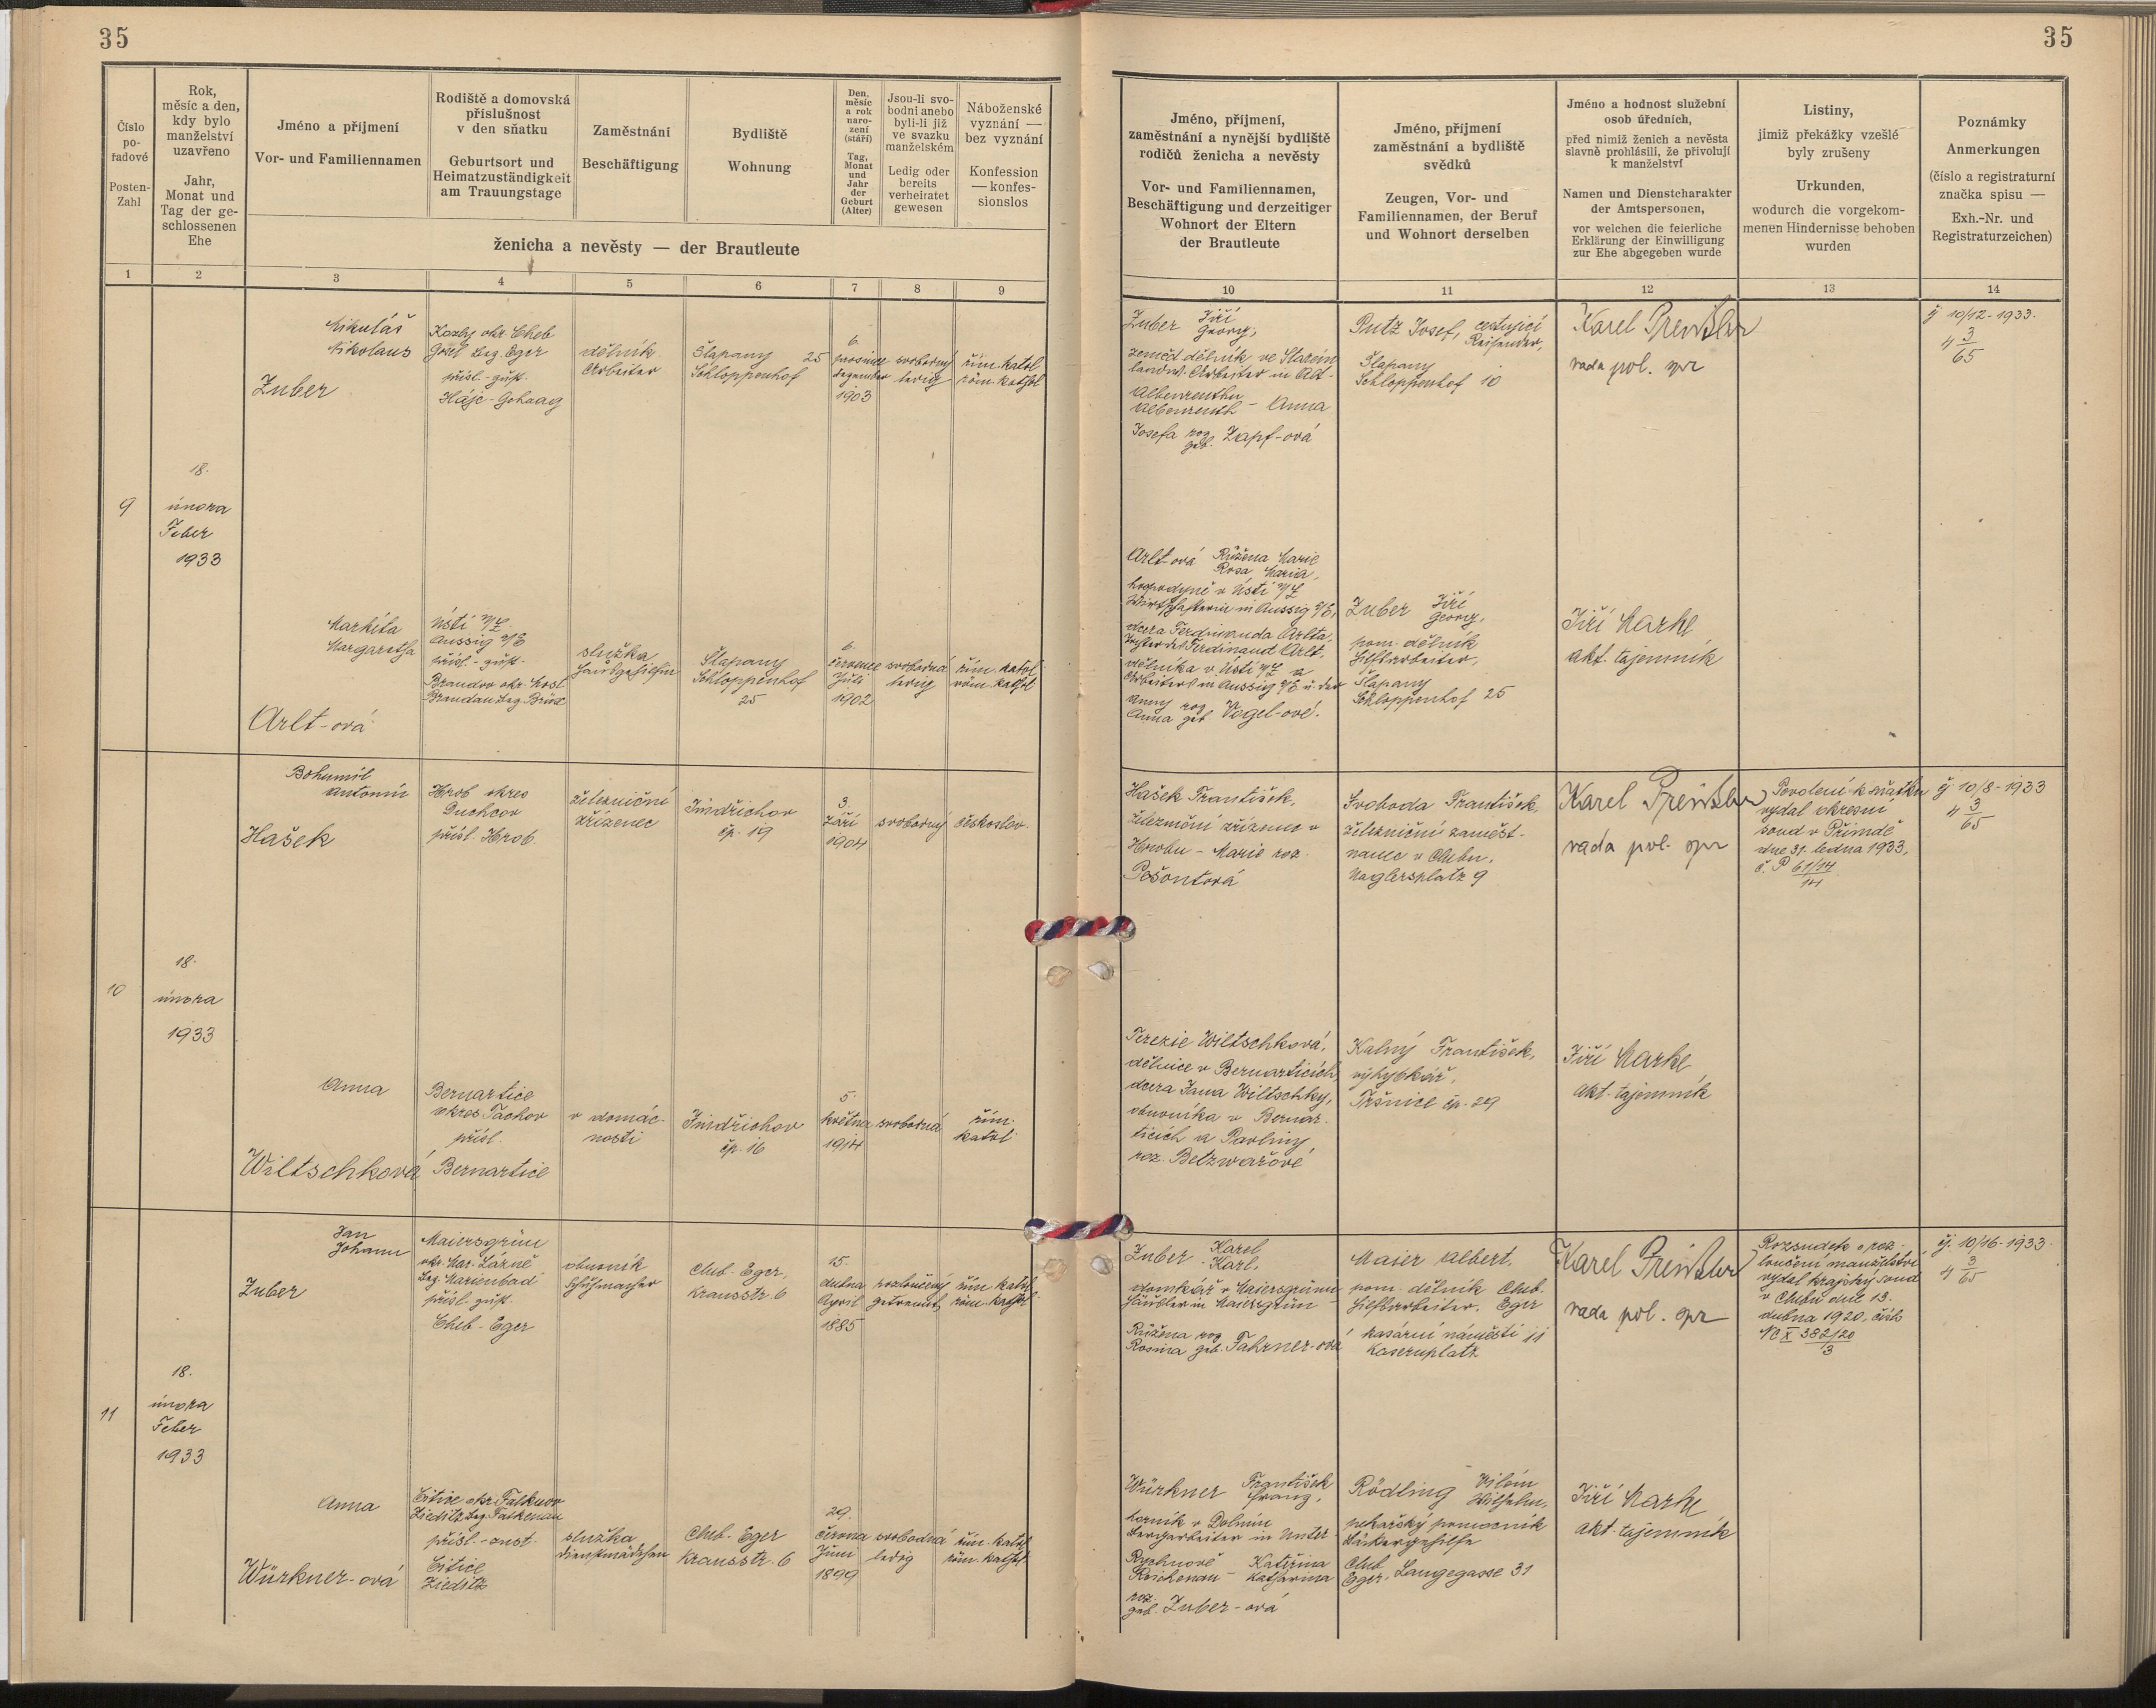 35
35
Číslo
po-
řadové
Posten-
Zahl
Rok,
měsíc a den,
kdy bylo
manželství
uzavřeno
Jahr,
Monat und
Tag der ge-
schlossenen
Ehe
Jméno a příjmení
Vor- und Familiennamen
Rodiště a domovská
příslušnost
v den sňatku
Geburtsort und
Heimatzuständigkeit
am Trauungstage
Zaměstnání
Beschäftigung
Bydliště
Wohnung
Den,
měsíc
a rok
naro-
zení
(stáří)
Tag,
Monat
und
Jahr
der
Geburt
(Alter)
Jsou-li svo-
bodni anebo
byli-li již
ve svazku
manželském
Ledig oder
bereits
verheiratet
gewesen
Náboženské
vyznání —
bez vyznání
Konfession
— konfes-
sionslos
ženicha a nevěsty — der Brautleute
Jméno, příjmení,
zaměstnání a nynější bydliště
rodičů ženicha a nevěsty
Vor- und Familiennamen,
Beschäftigung und derzeitiger
Wohnort der Eltern
der Brautleute
Jméno, příjmení
zaměstnání a bydliště
svědků
Zeugen, Vor- und
Familiennamen, der Beruf
und Wohnort derselben
Jméno a hodnost služební
osob úředních,
před nimiž ženich a nevěsta
slavně prohlásili, že přivolují
k manželství
Namen und Dienstcharakter
der Amtspersonen,
vor welchen die feierliche
Erklärung der Einwilligung
zur Ehe abgegeben wurde
Listiny,
jimiž překážky vzešlé
byly zrušeny
Urkunden,
wodurch die vorgekom-
menen Hindernisse behoben
wurden
Poznámky
Anmerkungen
(číslo a registraturní
značka spisu —
Exh.-Nr. und
Registraturzeichen)
1 2 3 4 5 6 7 8 9 10 11 12 13 14
9
18.
února
Feber
1933
Mikuláš
Nikolaus
Zuber
okr. Cheb
Bez. Eger
přísl.-zust.
Háje-Gehaag
dělník
Arbeiter
Šlapany 25
Schloppenhof
6.
prosince
Dezember
1903
svobodný
ledig
řím. katol
röm. kathol
Zuber Jiří
Georg,
zeměd dělník ve Starém
landw. Arbeiter in Alt-
Albenreuthu
Albenreuth - Anna
Josefa roz.
geb. Zapf-ová
Putz Josef, cestující
Reisender,
Šlapany
Schloppenhof 10
Karel
rada pol. spr
čj 10/12-1933.
4 3/65
Markéta
Margaretha
Arlt-ová
Ústí n/L
Aussig a/E
přísl.-zust.
Brandov okr. Most
Brandau Bez. Brüx
služka
Hausgehilfin
Šlapany
Schloppenhof
25
6.
července
Juli
1902
svobodná
ledig
řím. katol
röm. kathol
Arlt-ová Růžena Marie
Rosa Maria,
hospodyně v Ústí n/L
Wirtschafterin in Aussig a/E,
dcera Ferdinanda Arlta,
Tochter des Ferdinand Arlt,
dělníka v Ústí n/L a
Arbeiters in Aussig a/E u. der
Anny roz.
Anna geb. Vogel-ové.
Zuber Jiří
Georg,
pom. dělník
Hilfsarbeiter,
Šlapany
Schloppenhof 25
Jiří Markl
akt. tajemník
10
18.
února
1933
Bohumil
Antonín
Hašek
Hrob okres
Duchcov
přísl. Hrob.
železniční
zřízenec
Jindřichov
čp. 19
3.
září
1904
svobodný
českoslov.
Hašek František,
železniční zřízenec v
Hrobu - Marie roz.
Pešontová
Svoboda František,
železniční zaměst-
nanec v Chebu,
Naglersplatz 9
Karel
rada pol. spr
Povolení k sňatku
vydal okresní
soud v Přimdě
dne 31. ledna 1933,
č. P 61/14
14
čj 10/8-1933
4 3/65
Anna
Wiltschková
Bernartice
okres Tachov
přísl.
Bernartice
v domác-
nosti
Jindřichov
čp. 16
5.
května
1914
svobodná
řím.
katol.
Terezie Wiltschková,
dělnice v Bernarticích,
dcera Jana Wiltschky,
obuvníka v Bernar-
ticích a Pavliny
roz. Betzwařové
Kalný František,
výhybkář,
Tršnice čp. 29
Jiří Markl
akt. tajemník
11
18.
února
Feber
1933
Jan
Johann
Zuber
Maiersgrün
okr. Mar. Lázně
Bez. Marienbad
přísl. zust.
Cheb-Eger
obuvník
Schuhmacher
Cheb-Eger,
Krausstr. 6
15.
dubna
April
1885
rozloučený
getrennt
řím. katol
röm. kathol
Zuber Karel
Karl,
domkář v Maiersgrünu
Häusler in Maiersgrün -
Růžena roz.
Rosina geb. Fahrner-ová
Maier Albert,
pom. dělník Cheb.
Hilfsarbeiter. Eger
Kasární náměstí 11
Kasernplatz
Karel
rada pol. spr
Rozsudek o roz-
loučení manželství
vydal krajský soud
v Chebu dne 13.
dubna 1920, číslo
Nc X 382/20
3
čj. 10/16-1933.
4 3/65
Anna
Würkner-ová
Citice okr. Falknov
Zieditz Bez. Falkenau
přísl.-zust.
Citice
Zieditz
služka
Dienstmädchen
Cheb-Eger
Krausstr. 6
29.
června
Juni
1899
svobodná
ledig
řím. katol
röm. kathol
Würkner František
Franz,
horník v Dolním
Bergarbeiter in Unter-
Rychnově - Kateřina
Reichenau - Katharina
roz.
geb. Zuber-ová
Rödling Vilém
Wilhelm,
pekařský pomocník
Bäckergehilfe
Cheb
Eger, Langegasse 31
Jiří Markl
akt. tajemník